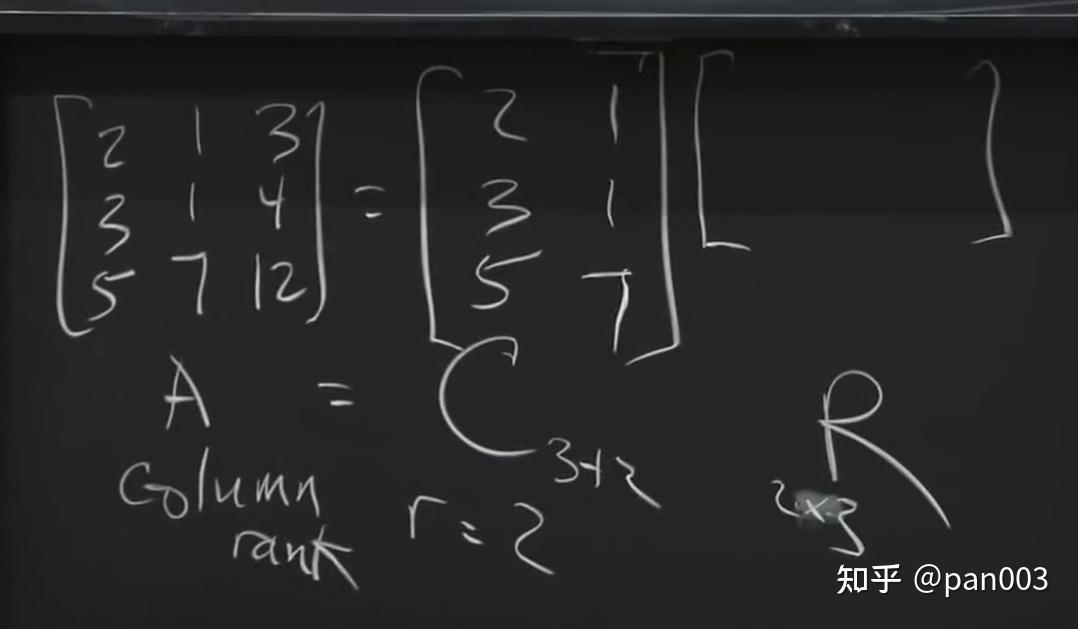 2 1 3 2 1
3 1 4 = 3 1
5 7 12 5 7
A = C 3×2 R 2×3
column
rank r = 2
知乎 @pan003